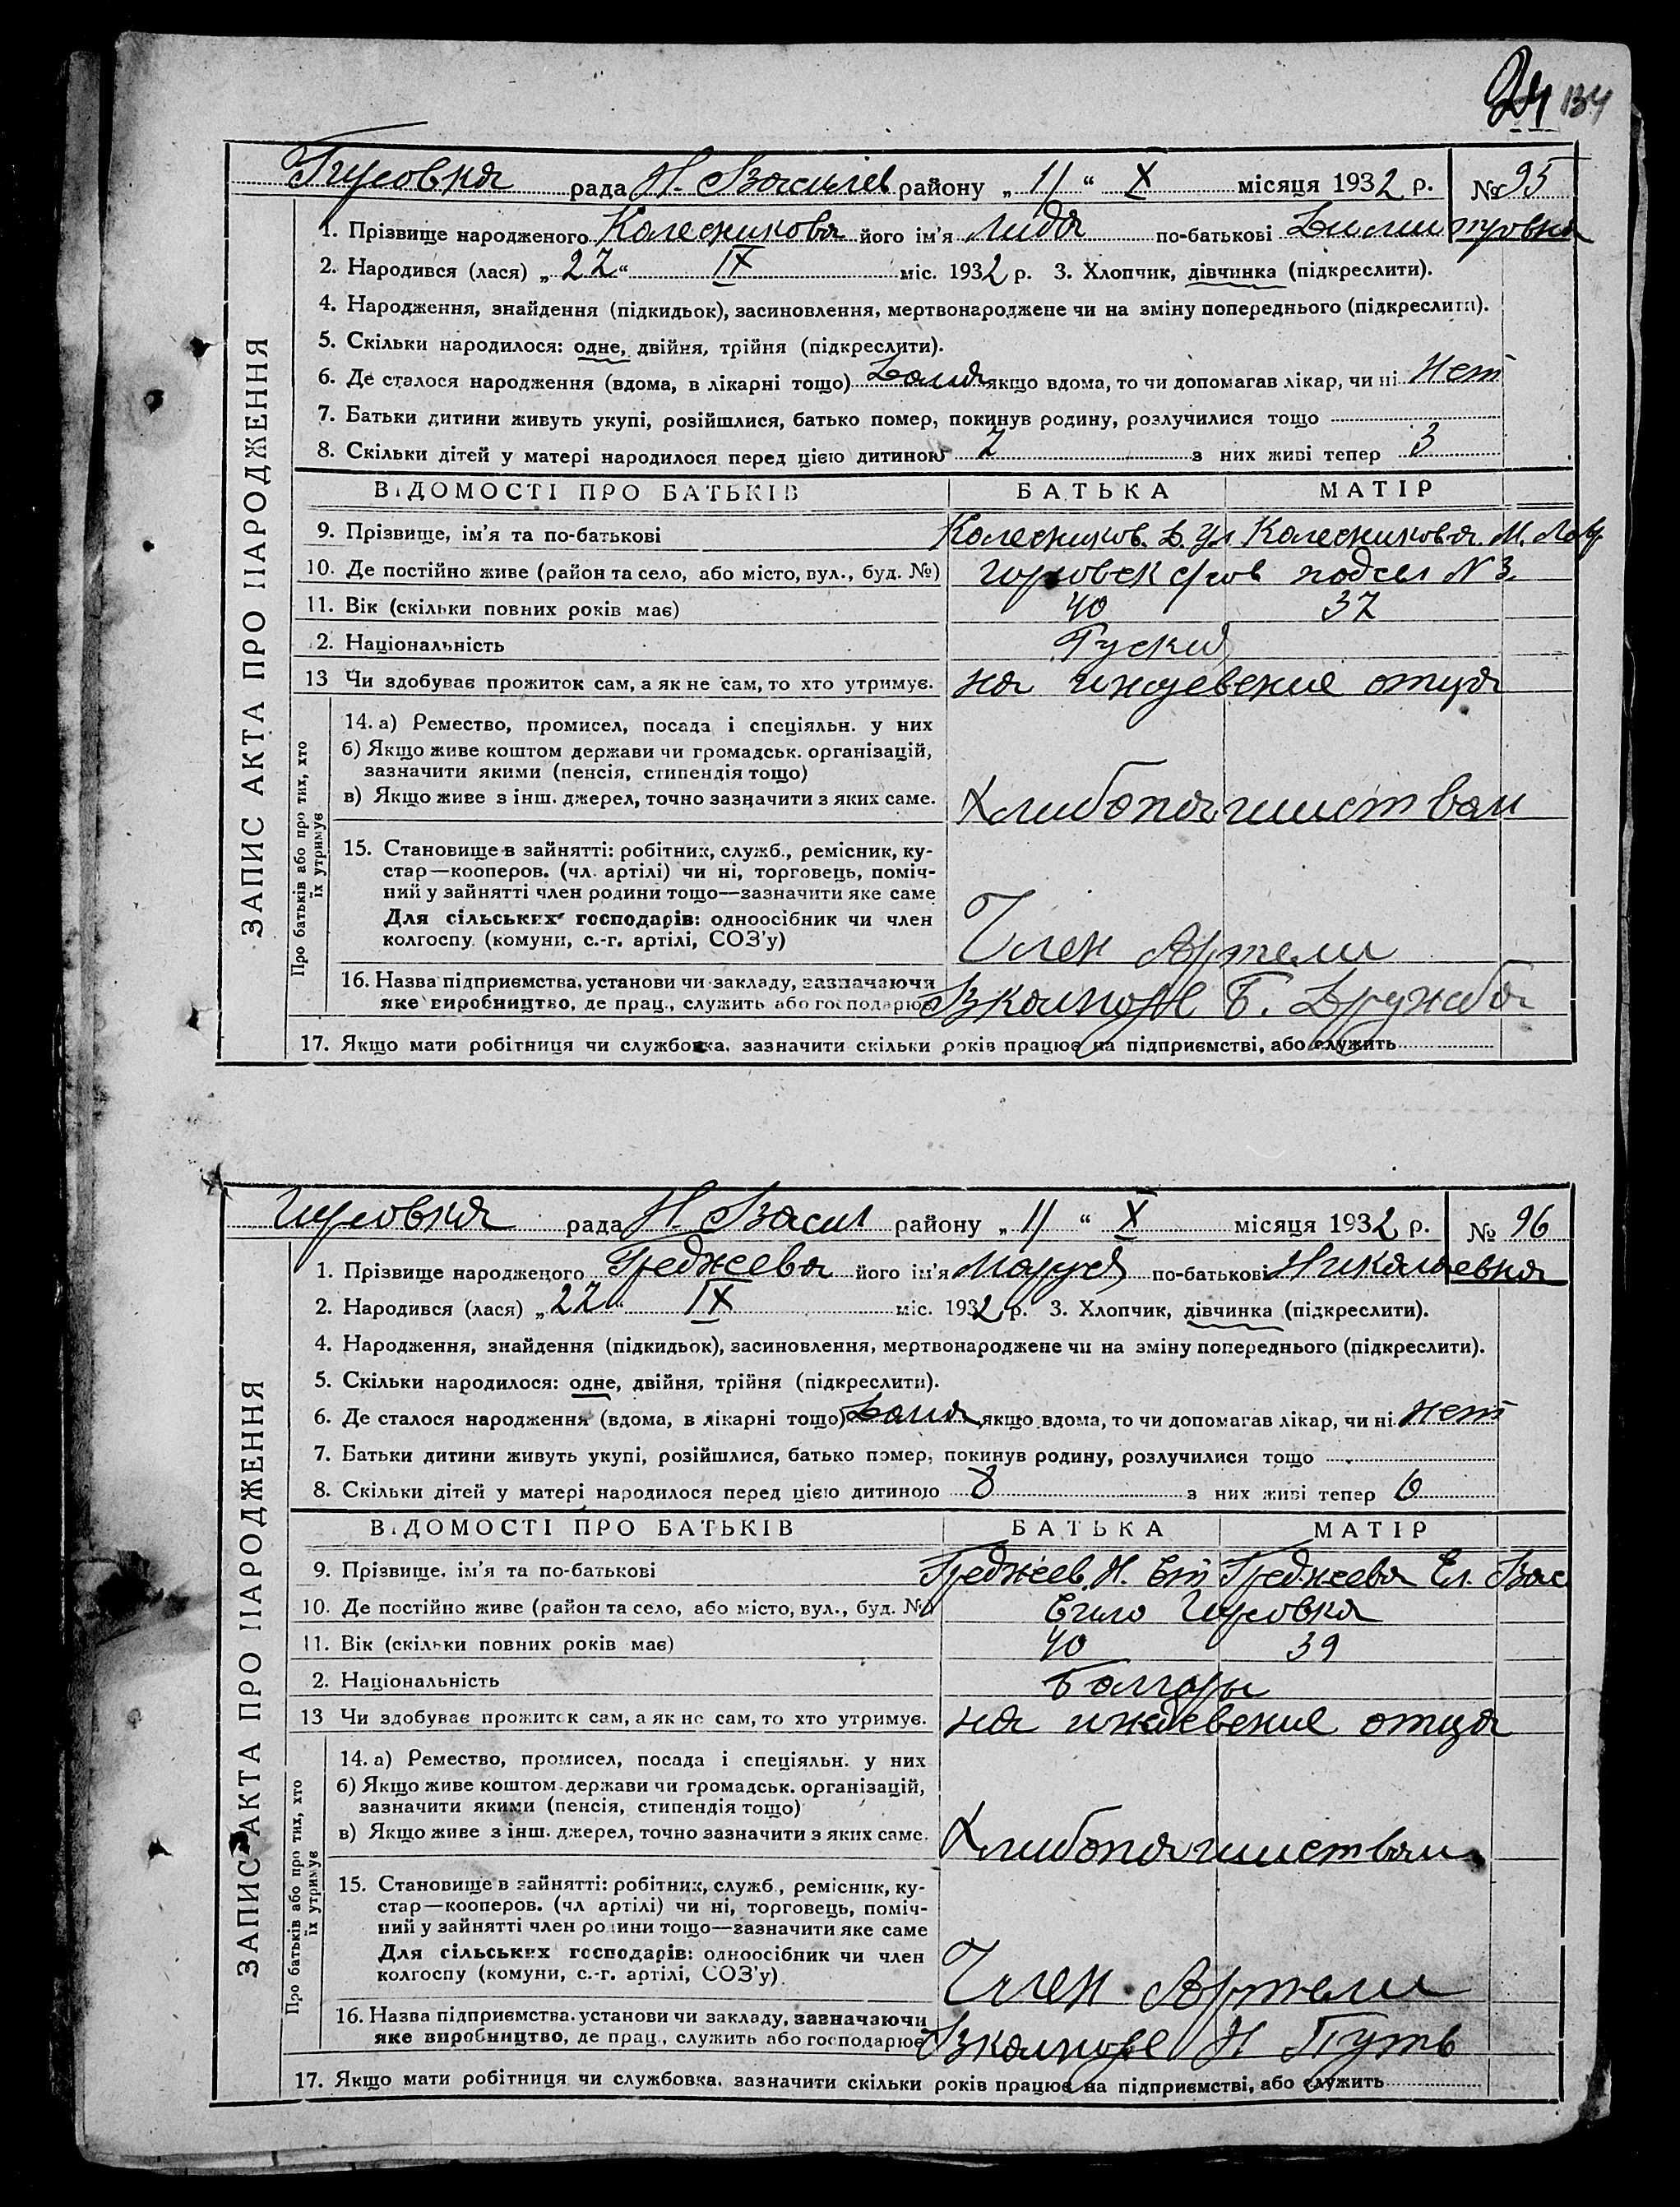 24 134
Гиресовка рада Н. Васильев району „ 11 “ X місяця 1932 р. № 95
ЗАПИС АКТА ПРО НАРОДЖЕННЯ
1. Прізвище народженого Колесникова його ім'я Лида по-батькові Димитровна
2. Народився (лася) „ 27 “ IX міс. 1932 р. 3. Хлопчик, дівчинка (підкреслити).
4. Народження, знайдення (підкидьок), засиновлення, мертвонароджене чи на зміну попереднього (підкреслити).
5. Скільки народилося: одне, двійня, трійня (підкреслити).
6. Де сталося народження (вдома, в лікарні тощо) Дома якщо вдома, то чи допомагав лікар, чи ні Нет
7. Батьки дитини живуть укупі, розійшлися, батько помер, покинув родину, розлучилися тощо
8. Скільки дітей у матері народилося перед цією дитиною 7 з них живі тепер 3
ВІДОМОСТІ ПРО БАТЬКІВ БАТЬКА МАТІР
9. Прізвище, ім'я та по-батькові Колесников. Д. Ул Колесникова. М. Лав
10. Де постійно живе (район та село, або місто, вул., буд. №) N 3.
11. Вік (скільки повних років має) 40 37
2. Національність Руский
13 Чи здобуває прожиток сам, а як не сам, то хто утримує. на иждевение отца
Про батьків або про тих, хто їх утримує
14. а) Ремество, промисел, посада і спеціяльн. у них
б) Якщо живе коштом держави чи громадськ. організацій,
зазначити якими (пенсія, стипендія тощо)
в) Якщо живе з інш. джерел, точно зазначити з яких саме. Хлибопашиством
15. Становище в зайнятті: робітник, служб., ремісник, ку-
стар—кооперов. (чл. артілі) чи ні, торговець, поміч-
ний у зайнятті член родини тощо—зазначити яке саме
Для сільських господарів: одноосібник чи член
колгоспу (комуни, с.-г. артілі, СОЗ'у) Член Артели
16. Назва підприємства, установи чи закладу, зазначаючи
яке виробництво, де прац., служить або господарює Б. Дружба
17. Якщо мати робітниця чи службовка, зазначити скільки років працює на підприємстві, або служить
рада Н. Васил району „ 11 “ X місяця 1932 р. № 96
ЗАПИС АКТА ПРО НАРОДЖЕННЯ
1. Прізвище народженого Греджева його ім'я Маруся по-батькові Николаевна
2. Народився (лася) „ 27 “ IX міс. 1932 р. 3. Хлопчик, дівчинка (підкреслити).
4. Народження, знайдення (підкидьок), засиновлення, мертвонароджене чи на зміну попереднього (підкреслити).
5. Скільки народилося: одне, двійня, трійня (підкреслити).
6. Де сталося народження (вдома, в лікарні тощо) Дома якщо вдома, то чи допомагав лікар, чи ні нет
7. Батьки дитини живуть укупі, розійшлися, батько помер, покинув родину, розлучилися тощо
8. Скільки дітей у матері народилося перед цією дитиною 8 з них живі тепер 6
ВІДОМОСТІ ПРО БАТЬКІВ БАТЬКА МАТІР
9. Прізвище, ім'я та по-батькові Греджев. Н. Греджева Ел. Вас
10. Де постійно живе (район та село, або місто, вул., буд. №)
11. Вік (скільки повних років має) 40 39
2. Національність Болгары
13 Чи здобуває прожиток сам, а як не сам, то хто утримує. на иждевение отца
Про батьків або про тих, хто їх утримує
14. а) Ремество, промисел, посада і спеціяльн. у них
б) Якщо живе коштом держави чи громадськ. організацій,
зазначити якими (пенсія, стипендія тощо)
в) Якщо живе з інш. джерел, точно зазначити з яких саме. Хлибопашиством
15. Становище в зайнятті: робітник, служб., ремісник, ку-
стар—кооперов. (чл. артілі) чи ні, торговець, поміч-
ний у зайнятті член родини тощо—зазначити яке саме
Для сільських господарів: одноосібник чи член
колгоспу (комуни, с.-г. артілі, СОЗ'у) Член Артели
16. Назва підприємства, установи чи закладу, зазначаючи
яке виробництво, де прац., служить або господарює Н Путь
17. Якщо мати робітниця чи службовка, зазначити скільки років працює на підприємстві, або служить